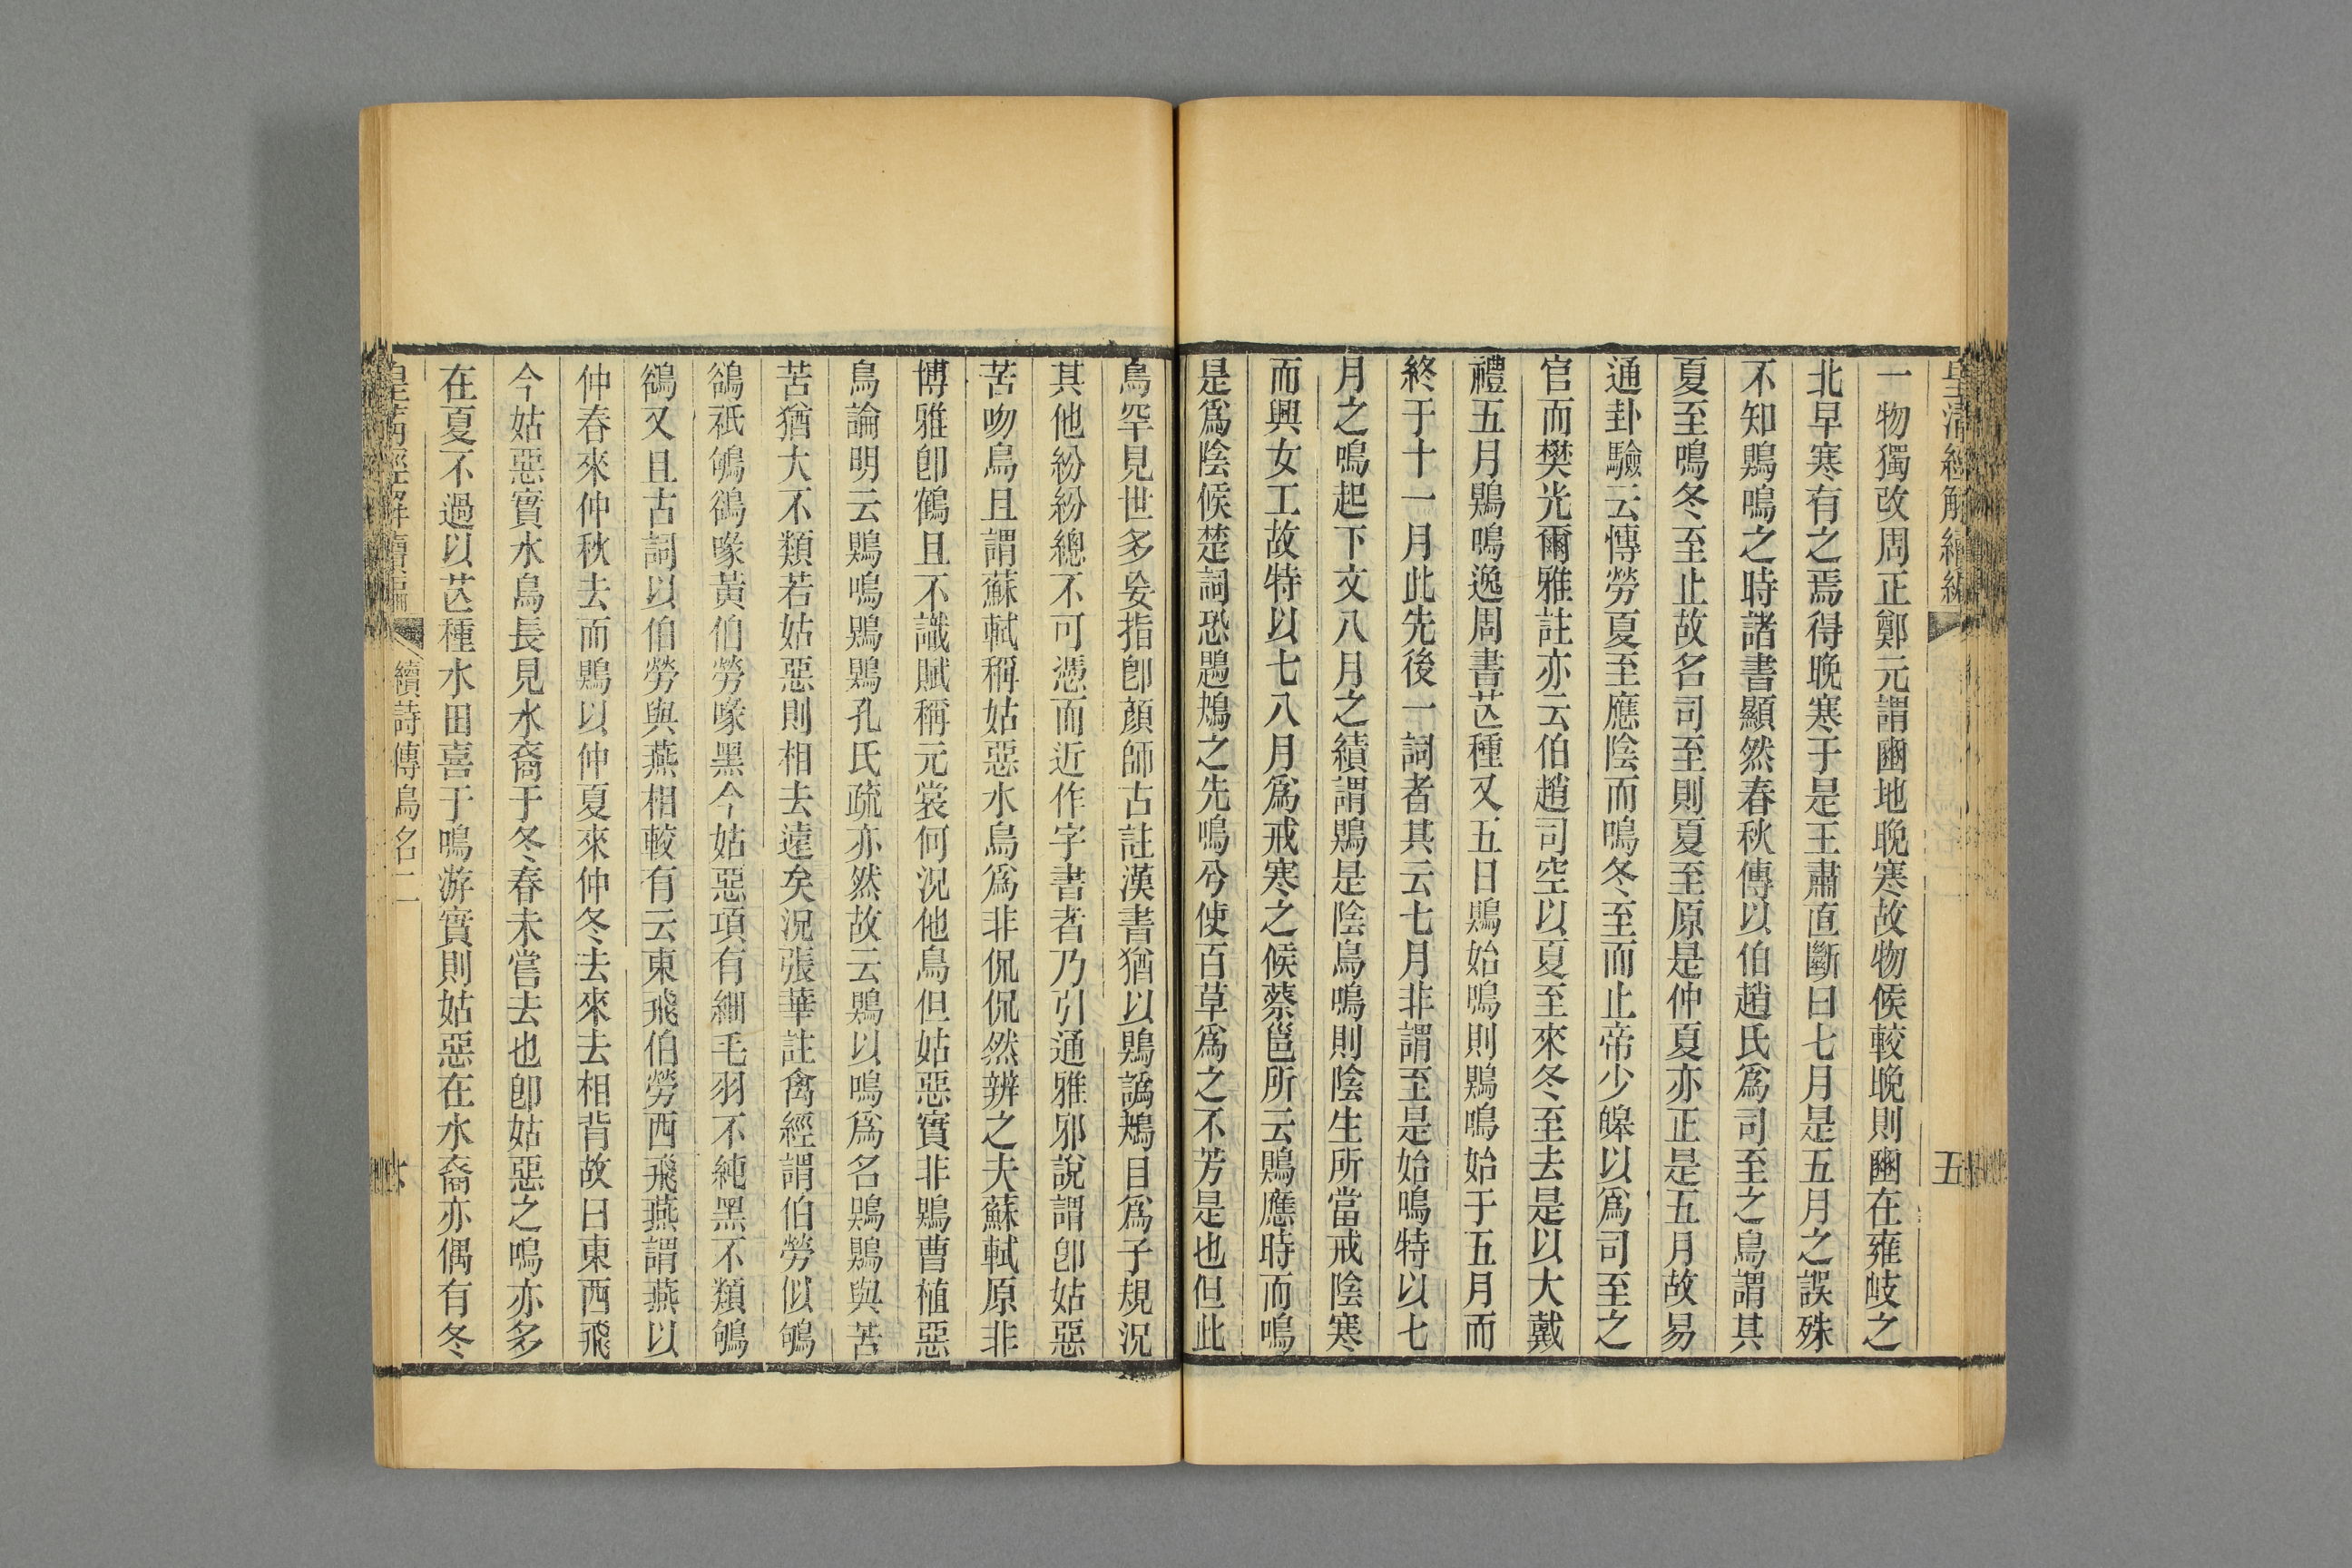 皇清經解續編
五
一物獨改周正鄭元謂豳地晚寒故物候較晚則豳在雍岐之
北早寒有之焉得晚寒于是王肅直斷曰七月是五月之誤殊
不知鵙鳴之時諸書顯然春秋傳以伯趙氏爲司至之鳥謂其
夏至鳴冬至止故名司至則夏至原是仲夏亦正是五月故易
通卦驗云博勞夏至應陰而鳴冬至而止帝少皡以爲司至之
官而樊光爾雅註亦云伯趙司空以夏至來冬至去是以大戴
禮五月鵙鳴逸周書芒種又五日鵙始鳴則鵙鳴始于五月而
終于十一月此先後一詞者其云七月非謂至是始鳴特以七
月之鳴起下文八月之績謂鵙是陰鳥鳴則陰生所當戒陰寒
而興女工故特以七八月爲戒寒之候蔡邕所云鵙應時而鳴
是爲陰候楚詞恐鶗鴂之先鳴兮使百草爲之不芳是也但此
鳥罕見世多妄指卽顏師古註漢書猶以鵙譌鴂目爲子規況
其他紛紛總不可憑而近作字書者乃引通雅邪說謂卽姑惡
苦吻鳥且謂蘇軾稱姑惡水鳥爲非侃侃然辨之夫蘇軾原非
博雅卽鶴且不識賦稱元裳何況他鳥但姑惡實非鵙曹植惡
鳥論明云鵙鳴鵙鵙孔氏疏亦然故云鵙以鳴爲名鵙鵙與苦
苦猶大不類若姑惡則相去遠矣況張華註禽經謂伯勞似鴝
鵒祇鴝鵒喙黃伯勞喙黑今姑惡項有細毛羽不純黑不類鴝
鵒又且古詞以伯勞與燕相較有云東飛伯勞西飛燕謂燕以
仲春來仲秋去而鵙以仲夏來仲冬去來去相背故曰東西飛
今姑惡實水鳥長見水裔于冬春未嘗去也卽姑惡之鳴亦多
在夏不過以芒種水田喜于鳴游實則姑惡在水裔亦偶有冬
皇清經解續編
續詩傳鳥名二